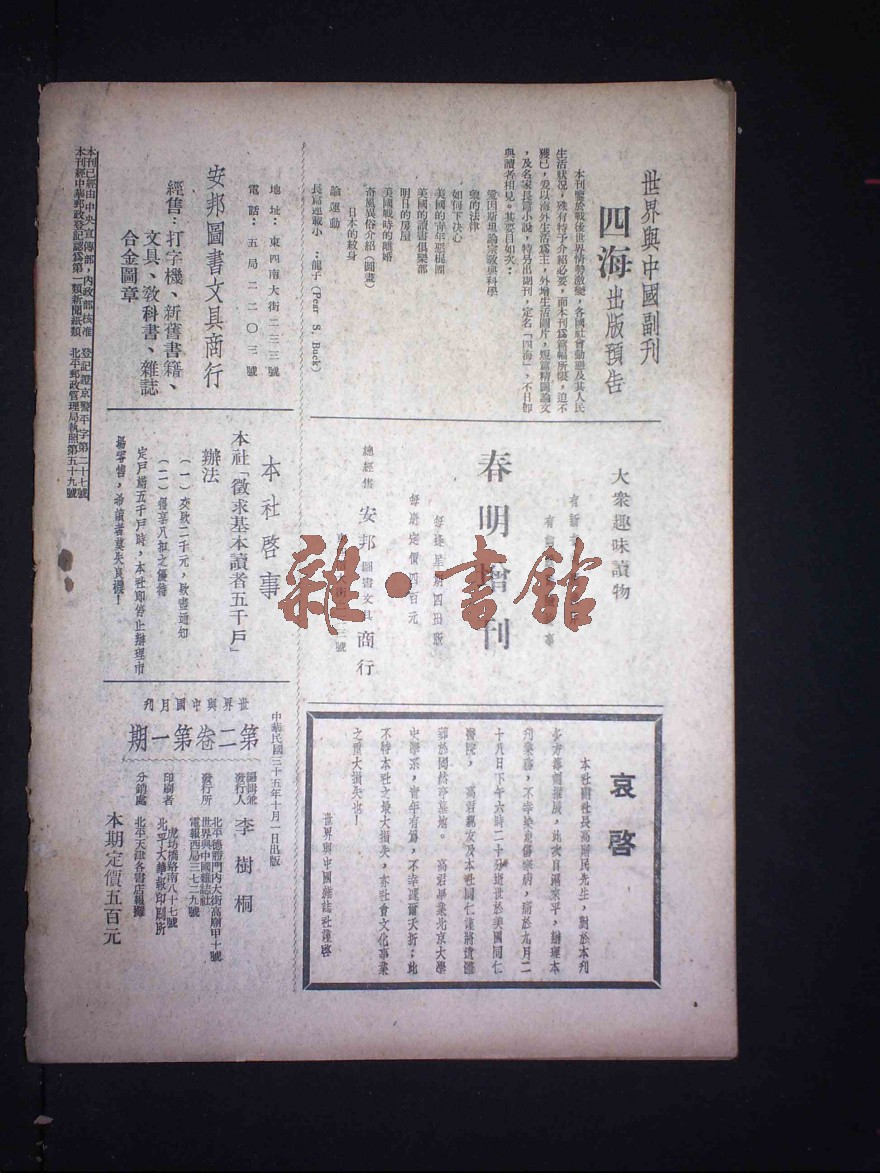 世界與中國副刊
四海出版預告
本刊鑒於戰後世界情勢激變,各國社會動態及其人民
生活狀況,殊有特予介紹必要,而本刊爲篇幅所限,迫不
獲已,爰以海外生活爲主,外增生活圖片,短篇精闢論文
,及名家長篇小說,特另出副刊,定名「四海」,不日即
與讀者相見。其要目如次:
愛因斯坦論宗教與科學
如何下決心
美國的讀書俱樂部
明日的房屋
美國戰時的離婚
奇風異俗介紹(圖畫)
日本的紋身
論運動
長篇連載小 :龍子(Pear S. Buck)
大衆趣味讀物
春明增刊
每逢星期四出版
每册定價四百元
總經售 安邦圖書文具商行
哀啓
多方籌劃擴展,此次自國來平,辦理本
十八日下午六時二十分逝世於美國同仁
醫院,
高君畢業北京大學
史學系,青年有爲,不幸遽爾夭折;此
不特本社之最大損失,亦社會文化事業
之重大損失也!
世界與中國雜誌社謹啓
地址:東四南大街二三三號
電話:五局二二〇三號
安邦圖書文具商行
經售:打字機、新舊書籍、
文具、敎科書、雜誌
合金圖章
本社啓事
本社「徵求基本讀者五千戶」
辦法
(一)交款二千元,款盡通知
(二)優享八扣之優待
定戶滿五千戶時,本社即停止辦理市
場零售,希讀者莫失良機!
世界與中國月刊
第二卷第一期
中華民國三十五年十月一日出版
編輯兼發行人 李樹桐
發行所 北平德勝門內大街高廟甲十號
世界與中國雜誌社
電報西局三七二九號
印刷者 虎坊橋路南八十七號
北平大華報印刷所
分銷處 北平天津各書店報攤
本期定價五百元
本刊已經由中央宣傳部,內政部核准 登記證京警平字第二十七號
本刊經中華郵政登記認爲第一類新聞紙類 北平郵政管理局執照第五十九號
雜·書館